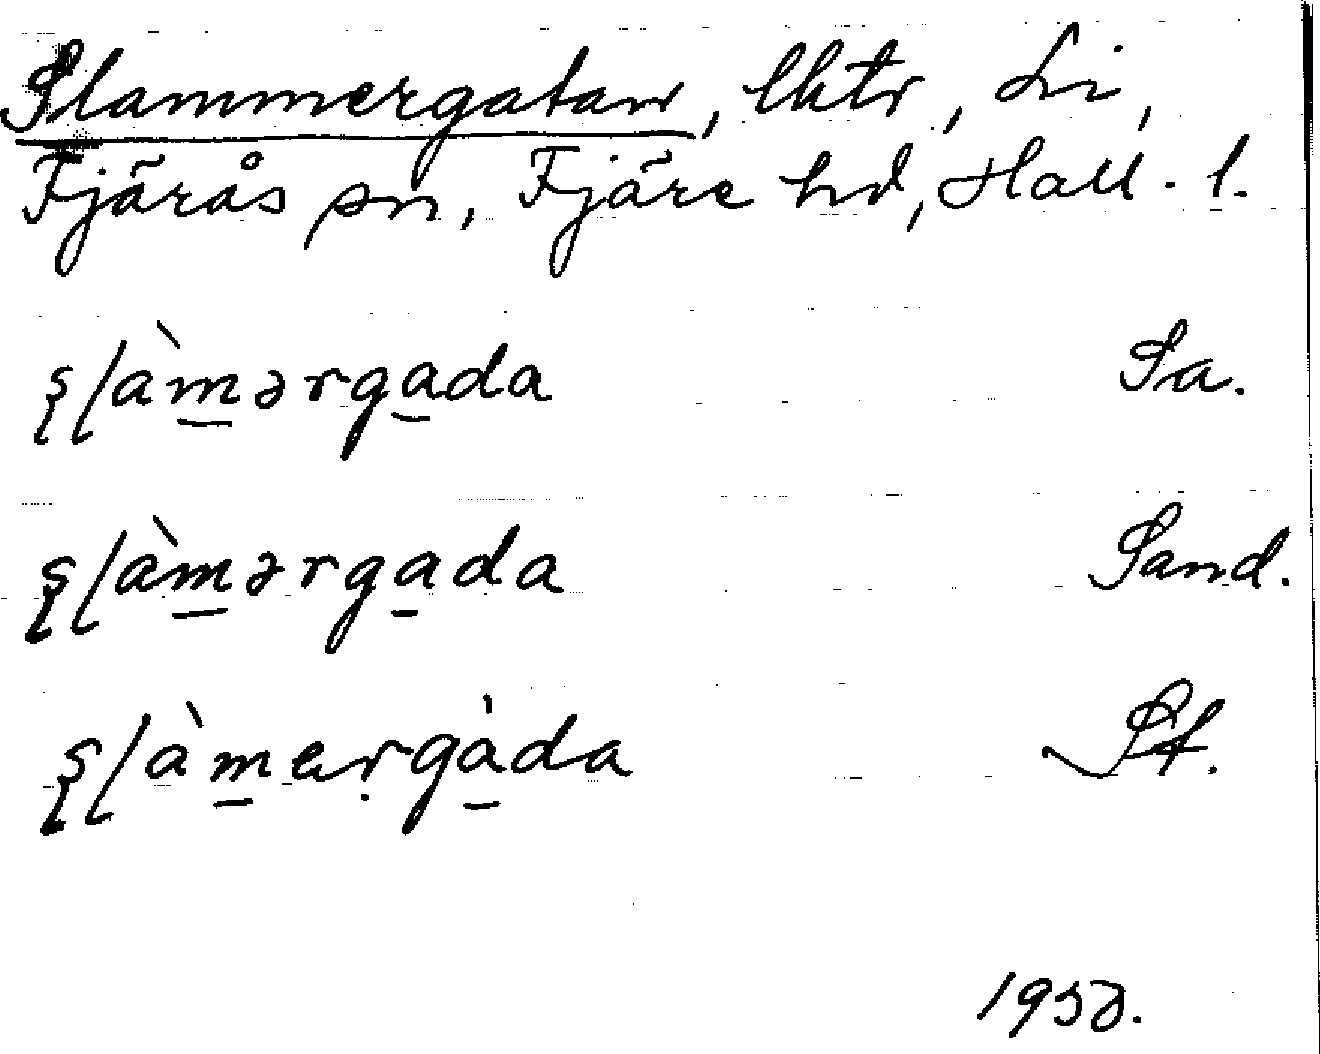 Slammergatan, lktr, Li,
Fjärås sn, Fjäre hd, Hall. l.
ʂɭàm̲ərga̲da Sa.
ʂɭàm̲ərga̲da Sand.
ʂɭàm̲eṛgà̲da St.
1950.